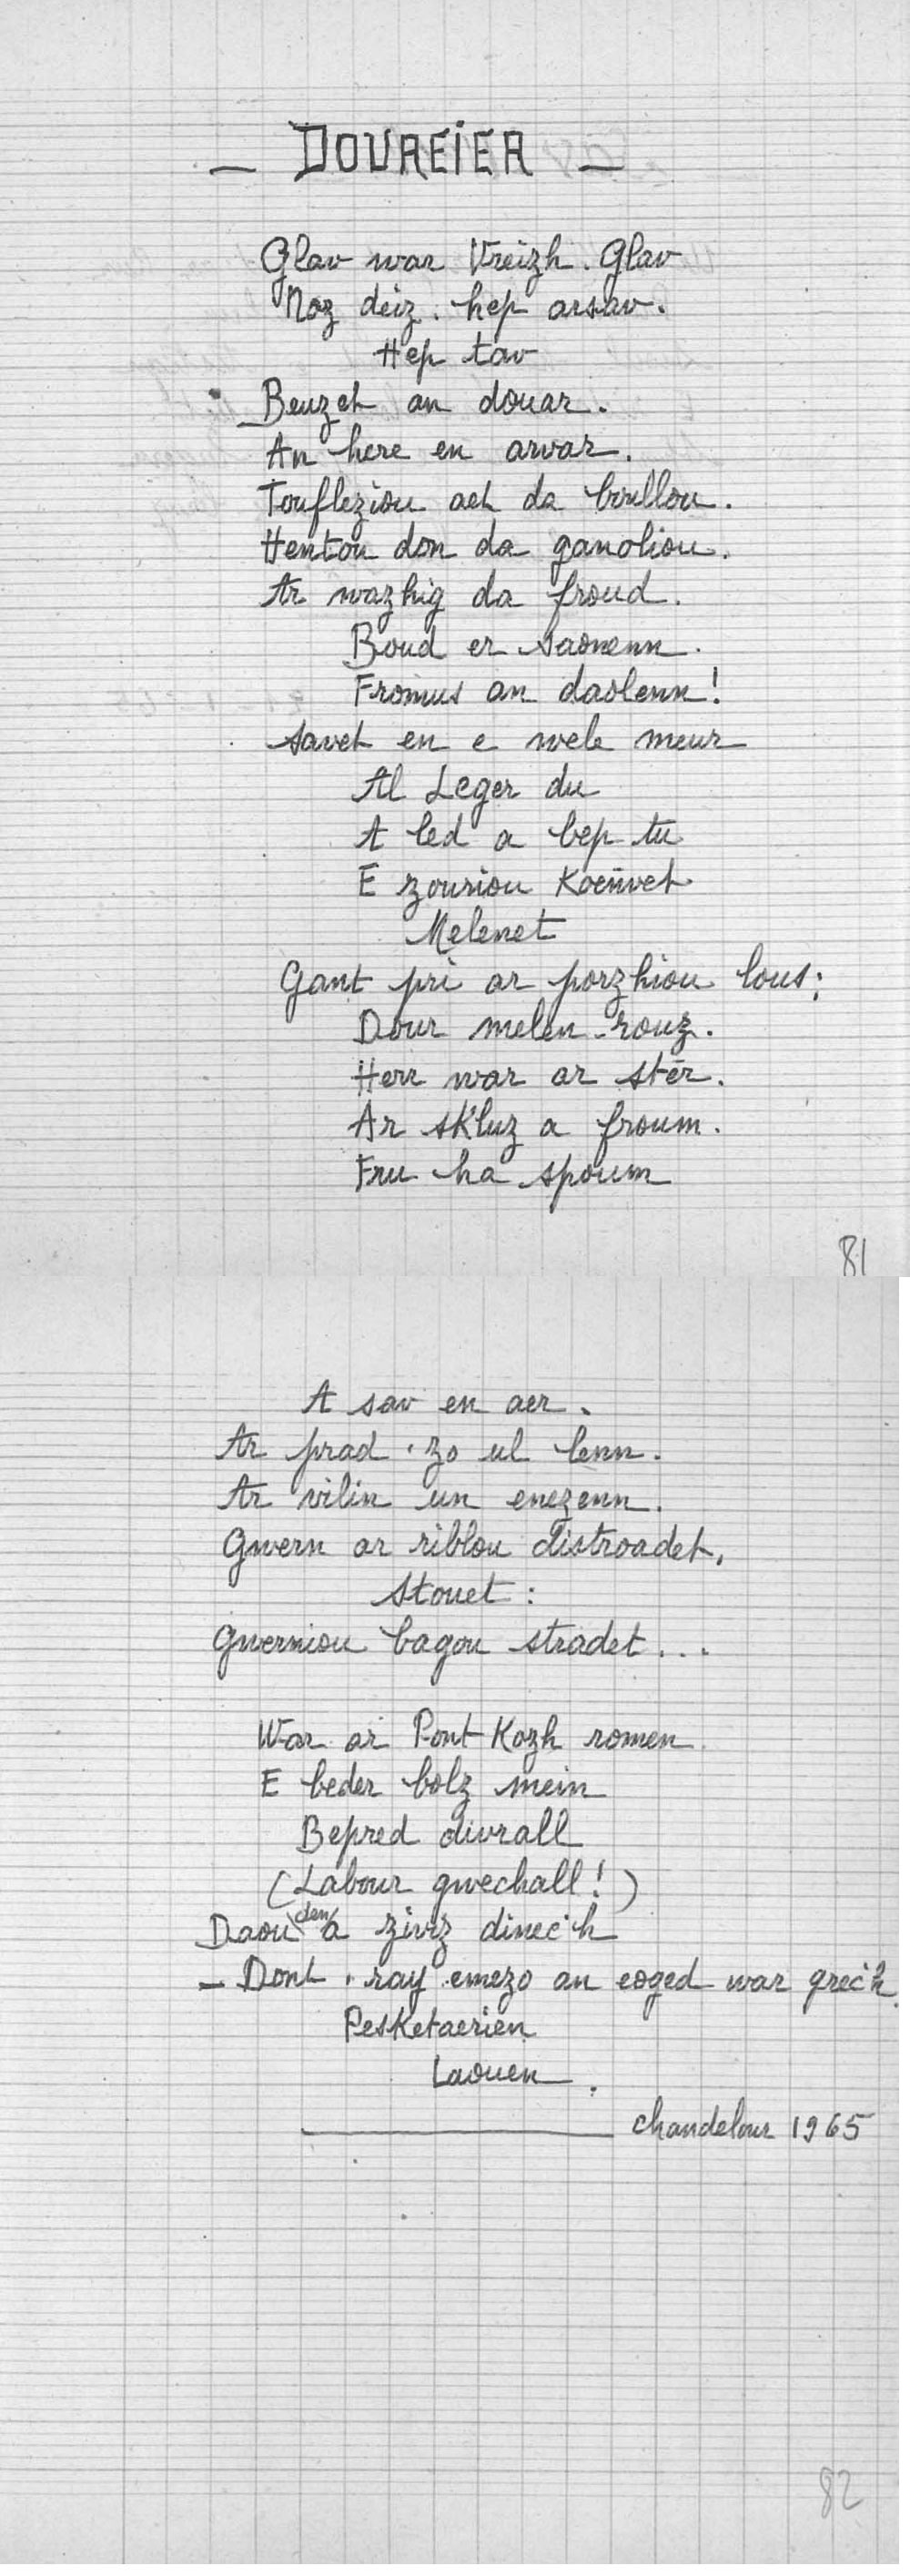 — DOUREIER —
Glav war Vreizh. Glav
Noz deiz. hep arsav.
Hep tav
Beuzet an douar.
An here en arvar.
Toufleziou aet da boullou.
Hentou don da ganoliou.
Ar wazhig da froud.
Boud er saonenn.
Fromus an daolenn!
Savet en e wele meur
Al Leger du
A led a bep tu
E zouriou Koeñvet
Melenet
Gant pri ar porzhiou lous;
Dour melen-rouz.
Herr war ar stêr.
Ar skluz a froum.
Fru ha spoum
81
A sav en aer.
Ar prad 'zo ul lenn.
Ar vilin un enezenn.
Gwern ar riblou distroadet,
Stouet:
Gwerniou bagou stradet...
War ar Pont Kozh romen
E beder bolz mein
Bepred divrall
(Labour gwechall!)
Daou den a ziviz dinec'h
— Dont 'ray emezo an eoged war grec'h.
Pesketaerien
Laouen.
chandelour 1965
82